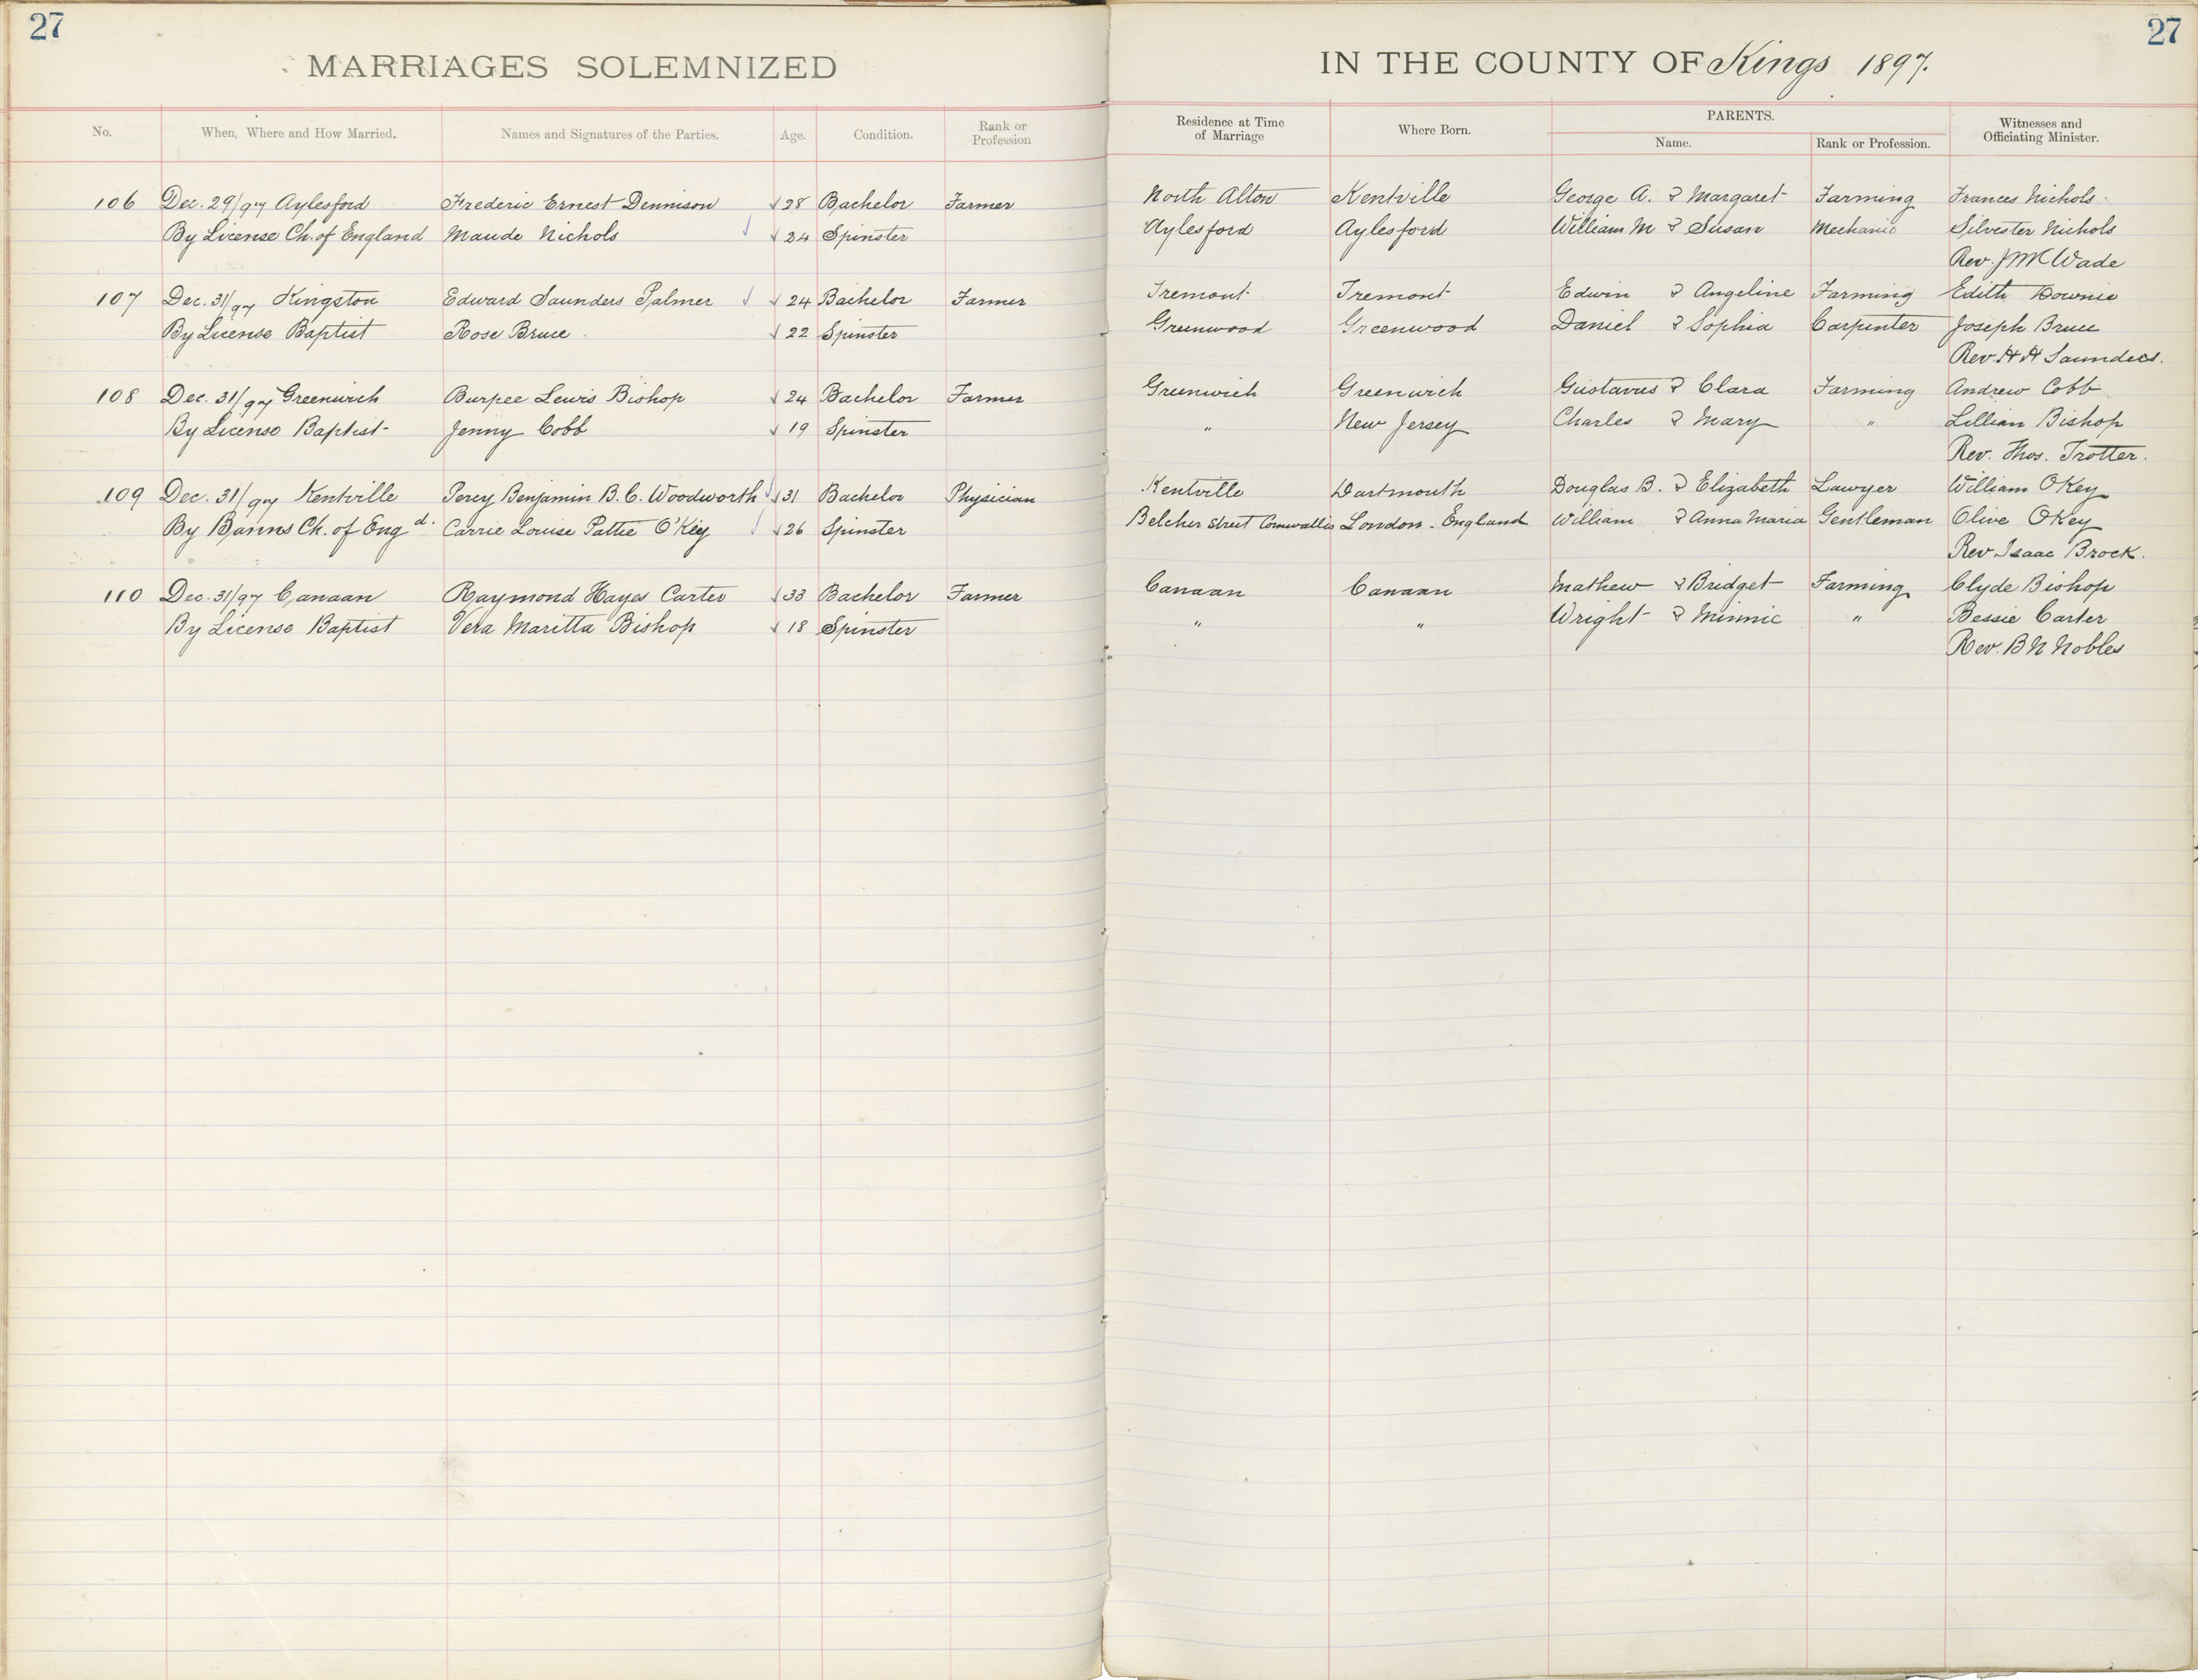 27
27
MARRIAGES SOLEMNIZED IN THE COUNTY OF Kings 1897.
No. When, Where and How Married. Names and Signatures of the Parties. Age. Condition. Rank or Profession Residence at Time of Marriage Where Born. PARENTS. Name. Rank or Profession. Witnesses and Officiating Minister.
106 Dec. 29/97 Aylesford Frederic Ernest Dennison 28 Bachelor Farmer North Alton Kentville George A. & Margaret Farming Frances Nichols
By License Ch. of England Maude Nichols 24 Spinster Aylesford Aylesford William M & Susan Mechanic Silvester Nichols
Rev. J M C Wade
107 Dec. 31/97 Kingston Edward Saunders Palmer 24 Bachelor Farmer Tremont Tremont Edwin & Angeline Farming Edith Downie
By License Baptist Rose Bruce 22 Spinster Greenwood Greenwood Daniel & Sophia Carpenter Joseph Bruce
Rev. H H Saunders.
108 Dec. 31/97 Greenwich Burpee Lewis Bishop 24 Bachelor Farmer Greenwich Greenwich Gustavus & Clara Farming Andrew Cobb
By License Baptist Jenny Cobb 19 Spinster " New Jersey Charles & Mary " Lillian Bishop
Rev. Thos. Trotter.
109 Dec. 31/97 Kentville Percy Benjamin B. C. Woodworth 31 Bachelor Physician Kentville Dartmouth Douglas B. & Elizabeth Lawyer William OKey
By Banns Ch. of Engd. Carrie Louise Pattie O'Key 26 Spinster Belcher Street Cornwallis London - England William & Anna Maria Gentleman Olive OKey
Rev Isaac Brock.
110 Dec. 31/97 Canaan Raymond Hayes Carter 33 Bachelor Farmer Canaan Canaan Mathew & Bridget Farming Clyde Bishop
By License Baptist Vera Maritta Bishop 18 Spinster " " Wright & Minnie " Bessie Carter
Rev. B N Nobles